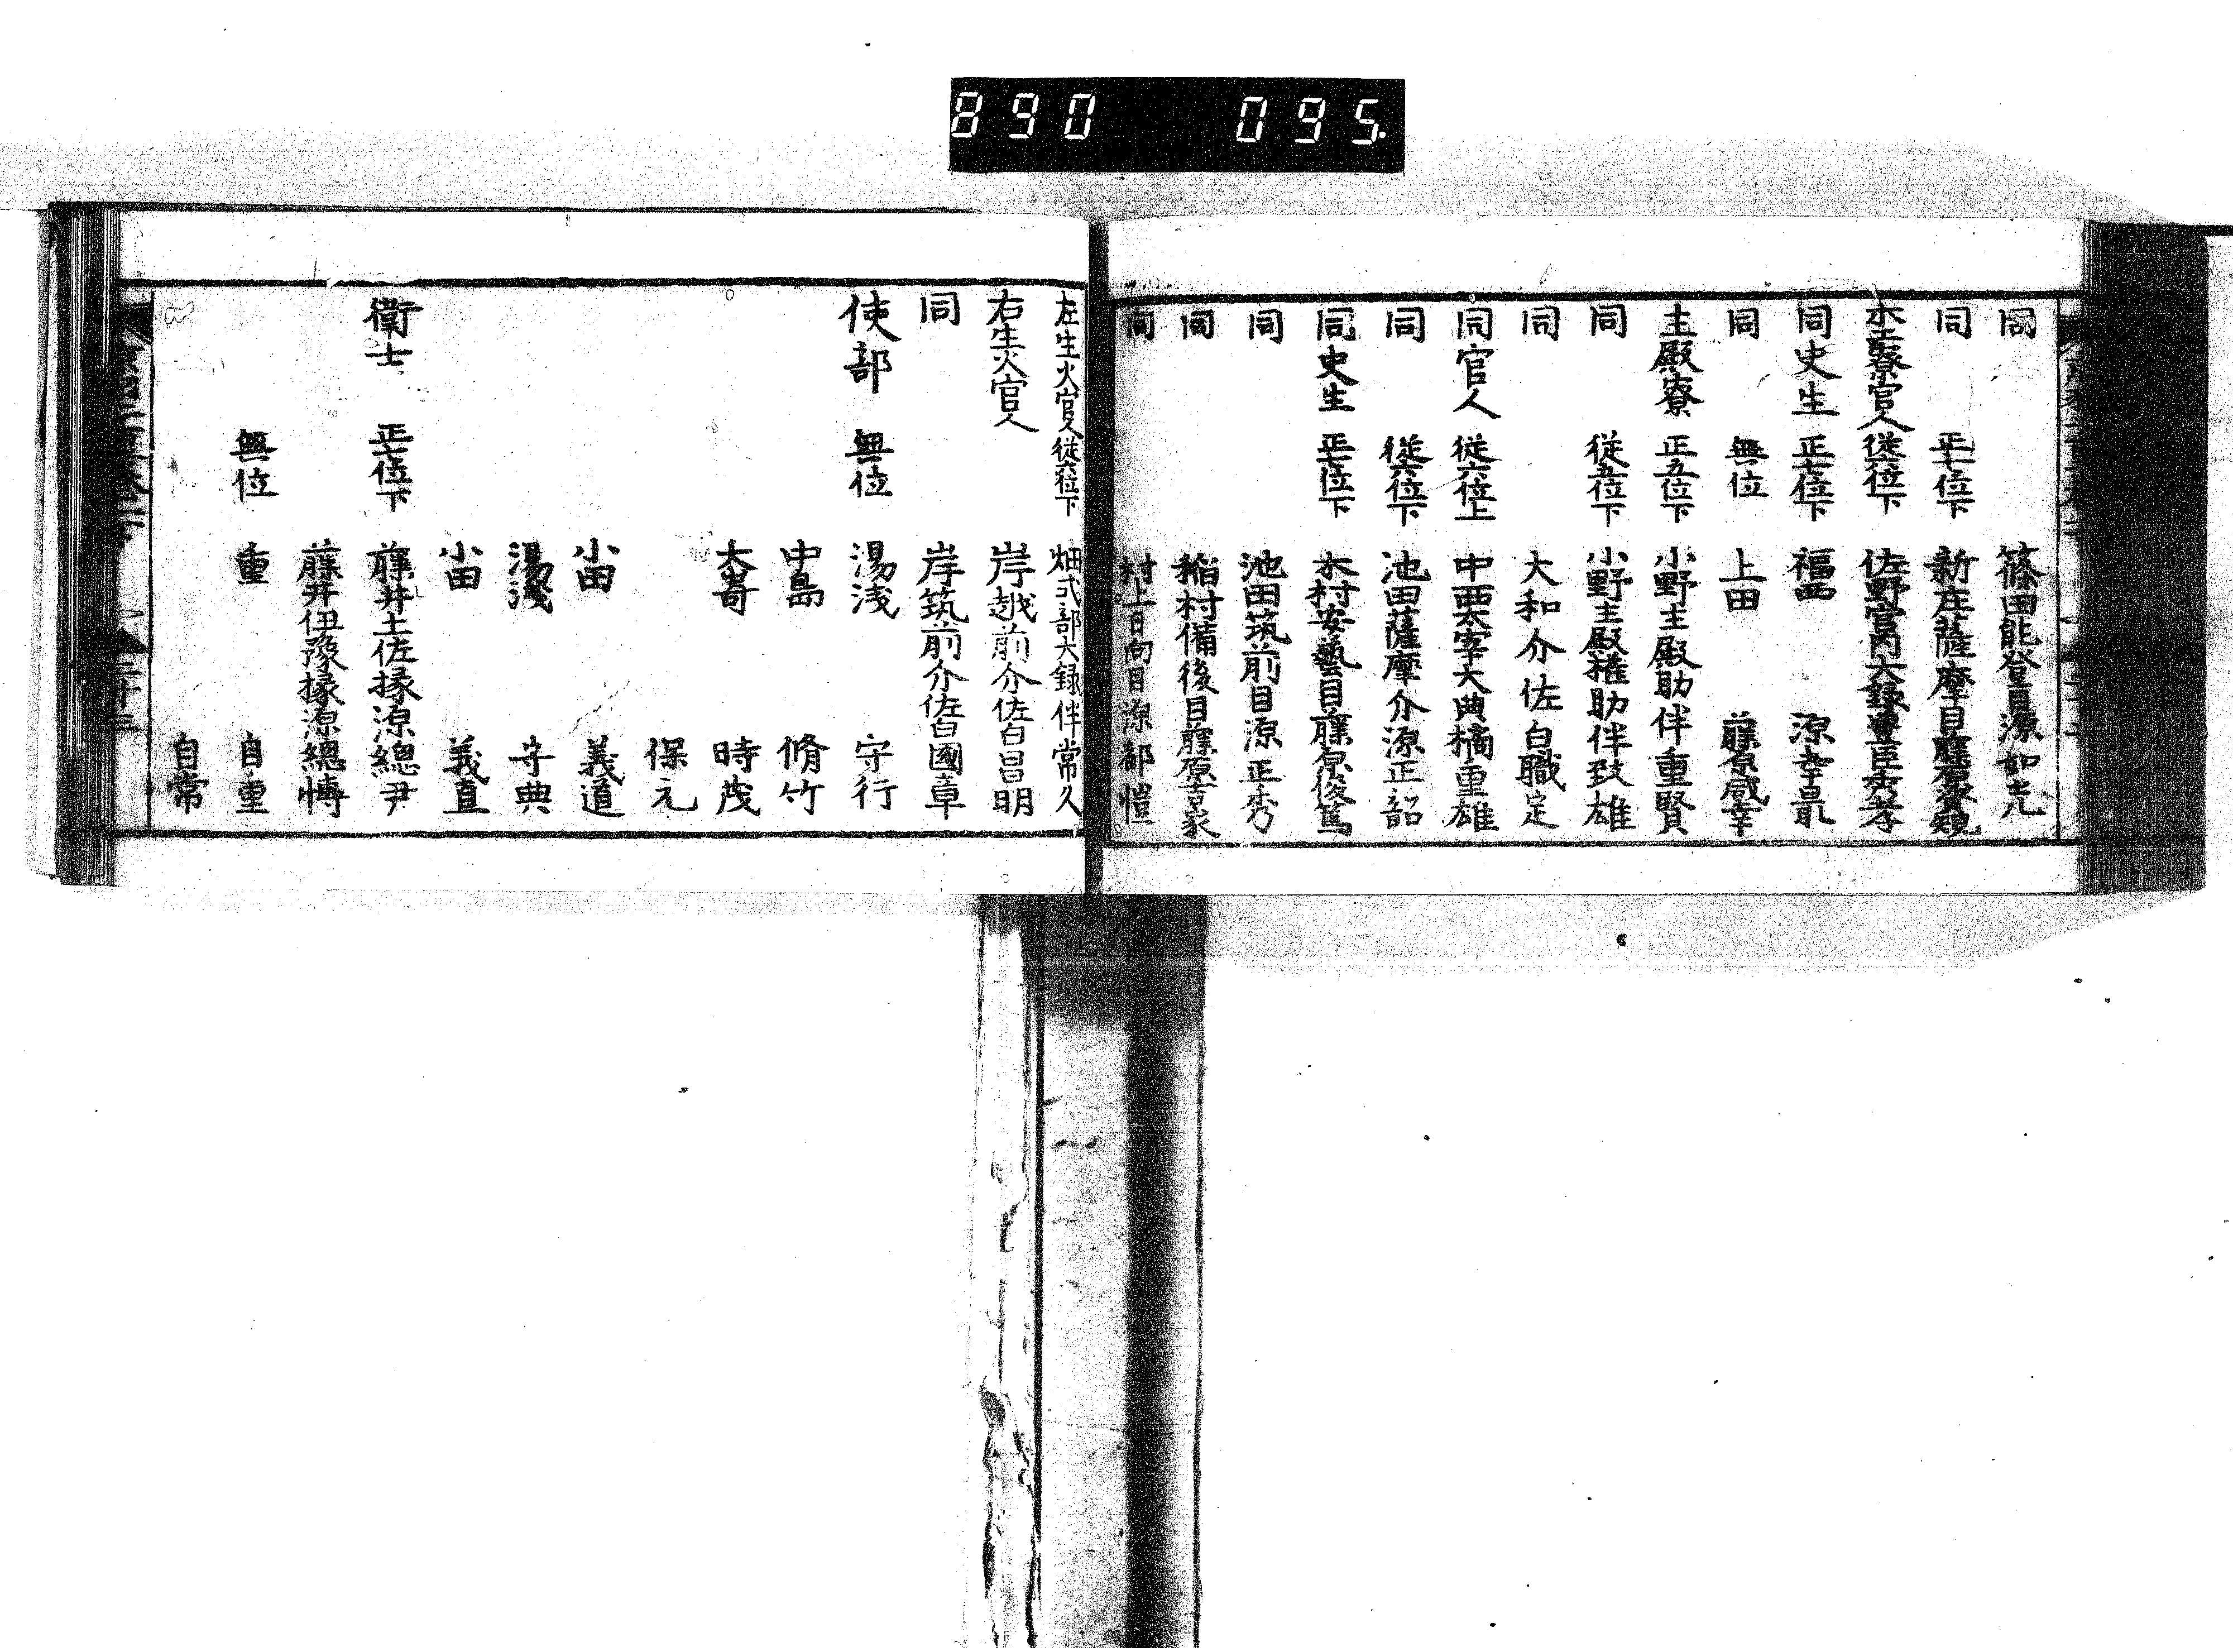 890 095
同 篠田能登目源如光
同 正七位下 新庄薩摩目藤原
木工寮官人 従六位下 佐野宮内大録豊臣秀孝
同史生 正七位下 福田 源
同 無位 上田 藤原咸幸
主殿寮 正五位下 小野主殿助伴重賢
同 従五位下 小野主殿権助伴致雄
同 大和介佐白職定
同官人 従六位上 中西太宰大典橘重雄
同 従六位下 池田薩摩介源正韶
同史生 正七位下 木村安藝目藤原後篤
同 池田筑前目源正秀
同 稲村備後目藤原言泉
同 村上日向目源都愷
左生火官人 従六位下 畑式部大録伴常久
右生火官人 岸越前介佐白昌明
同 岸筑前介佐白國章
使部 無位 湯浅 守行
中島 脩竹
大嵜 時茂
保元
小田 義道
湯浅 守典
小田 義直
衛士 正七位下 藤井土佐掾源總尹
藤井伊豫掾源總慱
無位 重 自重
自常